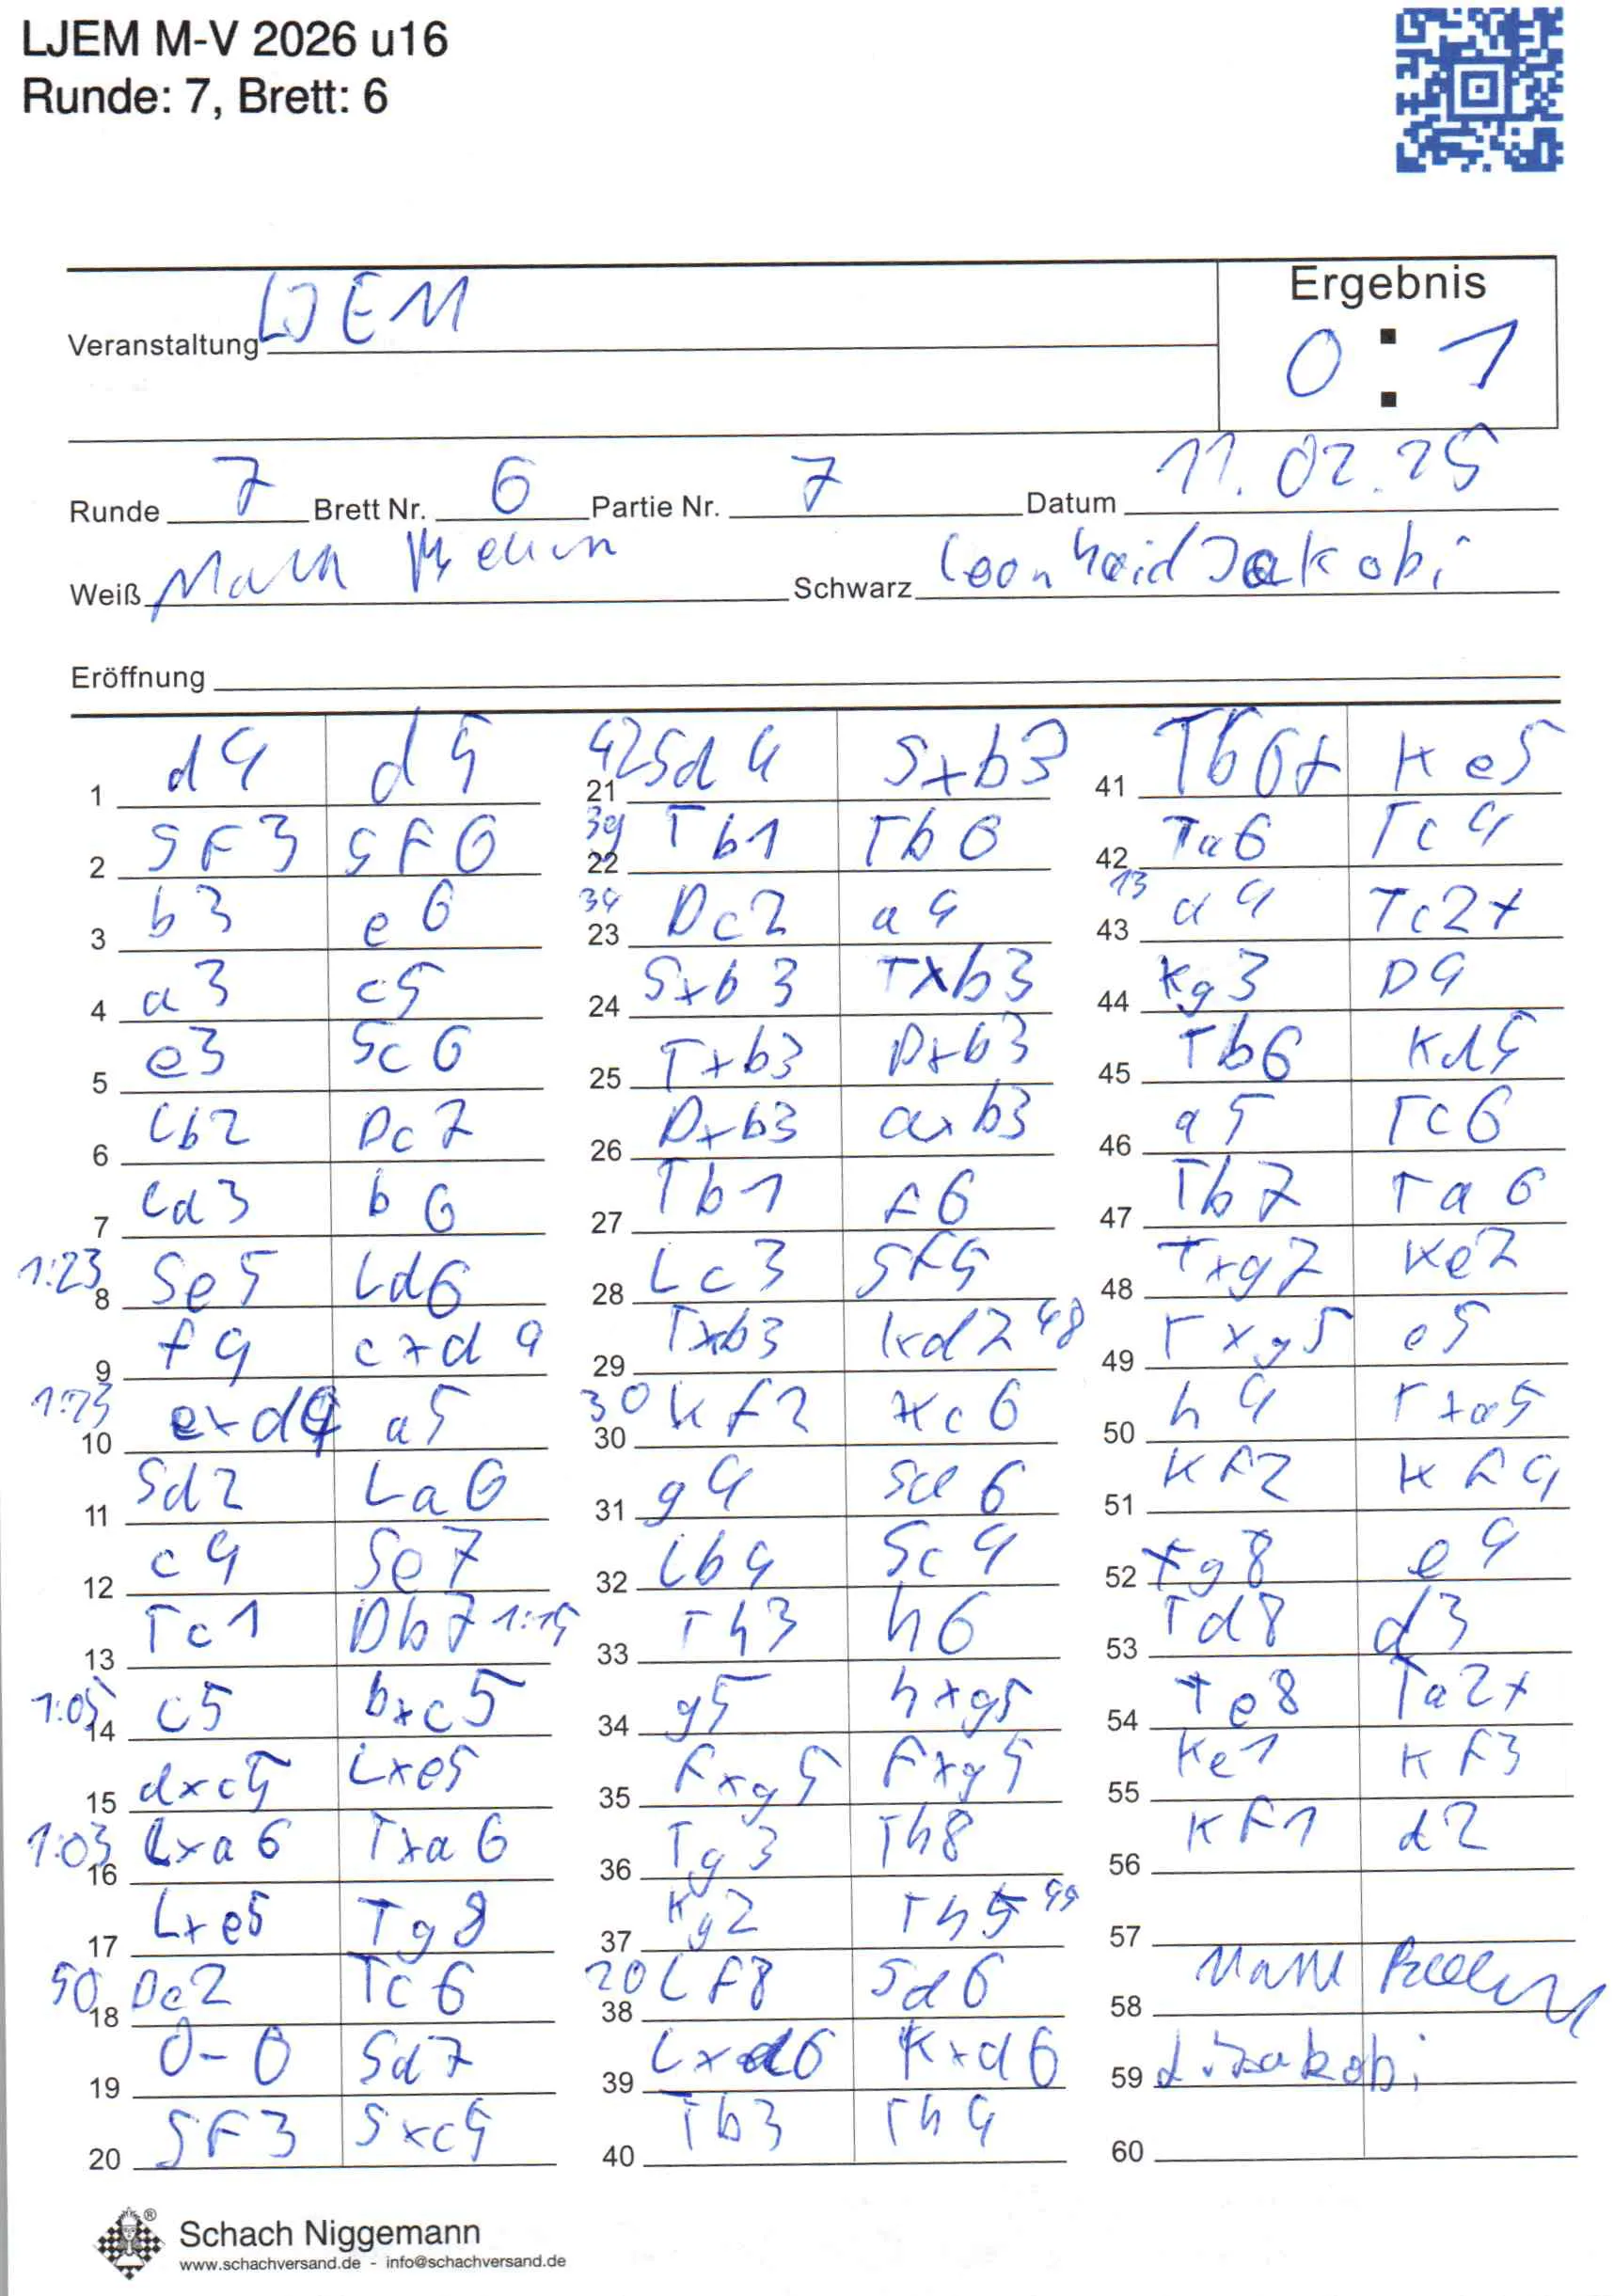 LJEM M-V 2026 u16
Runde: 7, Brett: 6
Ergebnis
0 : 1
Veranstaltung LJEM
Runde 7 Brett Nr. 6 Partie Nr. 7 Datum 11.02.25
Weiß Schwarz Leonhard Jakobi
Eröffnung
1 d4 d5
2 SF3 SF6
3 b3 e6
4 a3 c5
5 e3 Sc6
6 Lb2 Dc7
7 Ld3 b6
1:23 8 Se5 Ld6
9 f4 cxd4
1:23 10 exd4 a5
11 Sd2 La6
12 c4 Se7
13 Tc1 Db7 1:15
1:05 14 c5 bxc5
15 dxc5 Lxe5
1:03 16 Lxa6 Txa6
17 Lxe5 Tg8
50 18 De2 Tc6
19 0-0 Sd7
20 SF3 Sxc5
42 21 Sd4 Sxb3
39 22 Tb1 Tb6
34 23 Dc2 a4
24 Sxb3 Txb3
25 Txb3 Dxb3
26 Dxb3 axb3
27 Tb1 F6
28 Lc3 SF5
29 Txb3 Kd7 48
30 30 KF2 Kc6
31 g4 Sd6
32 Lb4 Sc4
33 Th3 h6
34 g5 hxg5
35 Fxg5 Fxg5
36 Tg3 Th8
37 Kg2 Th5 44
20 38 LF8 Sd6
39 Lxd6 Kxd6
40 Tb3 Th4
41 Tb6+ Ke5
42 Ta6 Tc4
13 43 a4 Tc2+
44 Kg3 D4
45 Tb6 Kd5
46 a5 Tc6
47 Tb7 Ta6
48 Txg7 Ke7
49 Txg5 e5
50 h4 Txa5
51 KF2 KF4
52 Tg8 e4
53 Td8 d3
54 Te8 Ta2+
55 Ke1 KF3
56 KF1 d2
57
58
59 L. Jakobi
60
Schach Niggemann
www.schachversand.de - info@schachversand.de